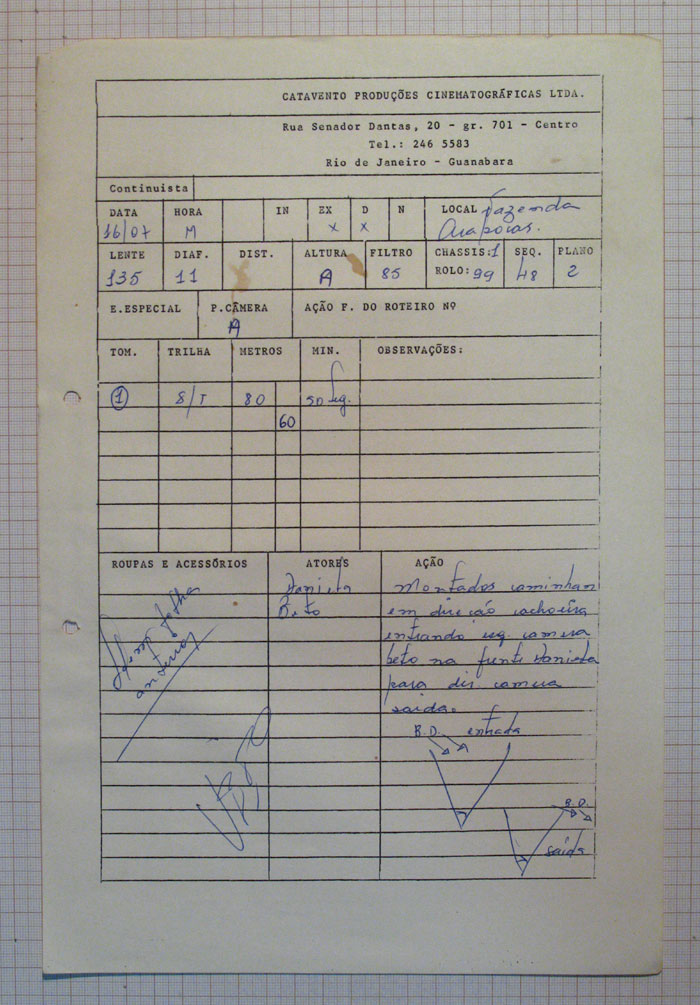 CATAVENTO PRODUÇÕES CINEMATOGRÁFICAS LTDA.
Rua Senador Dantas, 20 - gr. 701 - Centro
Tel.: 246 5583
Rio de Janeiro - Guanabara
Continuista
DATA HORA IN EX D N LOCAL Fazenda
16/07 M x x
LENTE DIAF. DIST. ALTURA FILTRO CHASSIS: 1 SEQ. PLANO
135 11 A 85 ROLO: 99 48 2
E.ESPECIAL P.CÂMERA AÇÃO F. DO ROTEIRO Nº
A
TOM. TRILHA METROS MIN. OBSERVAÇÕES:
1 S/T 80 50 seg.
60
ROUPAS E ACESSÓRIOS ATORES AÇÃO
Daniela Montados caminham
Beto em direção cachoeira
entrando esq. camera
beto na frente Daniela
para dir. camera
saida.
B.D. entrada
B.D.
saida
Idem folha
anterior